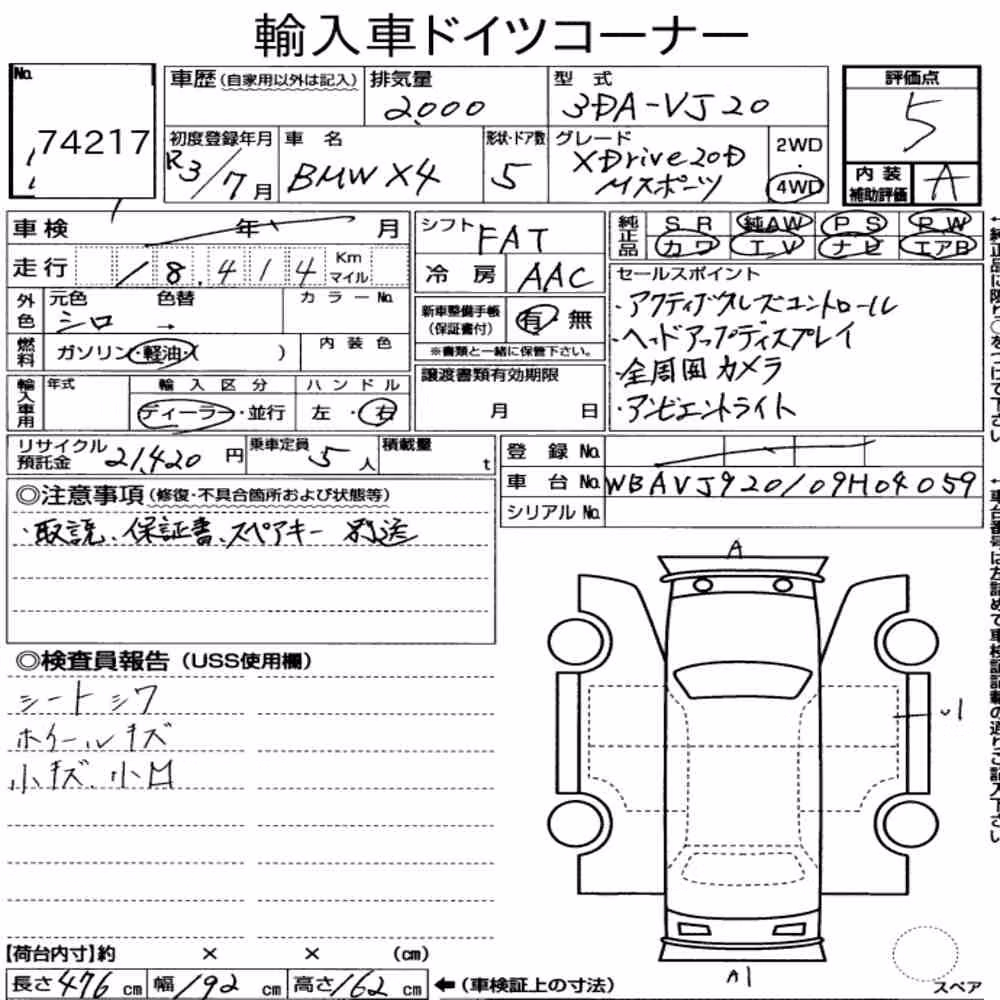 輸入車ドイツコーナー
No. 74217
車歴 (自家用以外は記入)
排気量 2,000
型式 3DA-VJ20
評価点 5
初度登録年月 R3/7月
車名 BMW X4
形状・ドア数 5
グレード XDrive20D Mスポーツ
2WD・4WD
内装補助評価 A
車検 年 月
シフト FAT
純正品 SR 純AW PS PW
カワ エV ナビ エアB
走行 18,414 Km マイル
冷房 AAC
セールスポイント
・アクティブクルーズコントロール
・ヘッドアップディスプレイ
・全周囲カメラ
・アンビエントライト
外色 元色 シロ 色替 → カラーNo.
新車整備手帳(保証書付) 有 無
※書類と一緒に保管下さい。
燃料 ガソリン・軽油・( ) 内装色
譲渡書類有効期限
月 日
輸入車用 年式 輸入区分 ハンドル
ディーラー・並行 左・右
リサイクル預託金 21,420円
乗車定員 5人
積載量 t
登録No.
車台No. WBAVJ920109H04059
シリアルNo.
◎注意事項(修復・不具合箇所および状態等)
・取説、保証書、スペアキー 別送
◎検査員報告(USS使用欄)
シートシワ
ホイールキズ
小キズ、小凹
A
A1
スペア
【荷台内寸】約 × × (cm)
長さ476cm 幅192cm 高さ162cm ←(車検証上の寸法)